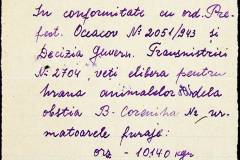 In conformitate cu ord. Pre-
fect. Oceacov № 2051/943 și
Decizia Guvern. Transnistriei
№ 2704, veți elibera pentru
hrana animalelor dela
obștia B- Coreniha № ur-
matoarele furaje:
orz - 10140 kgr